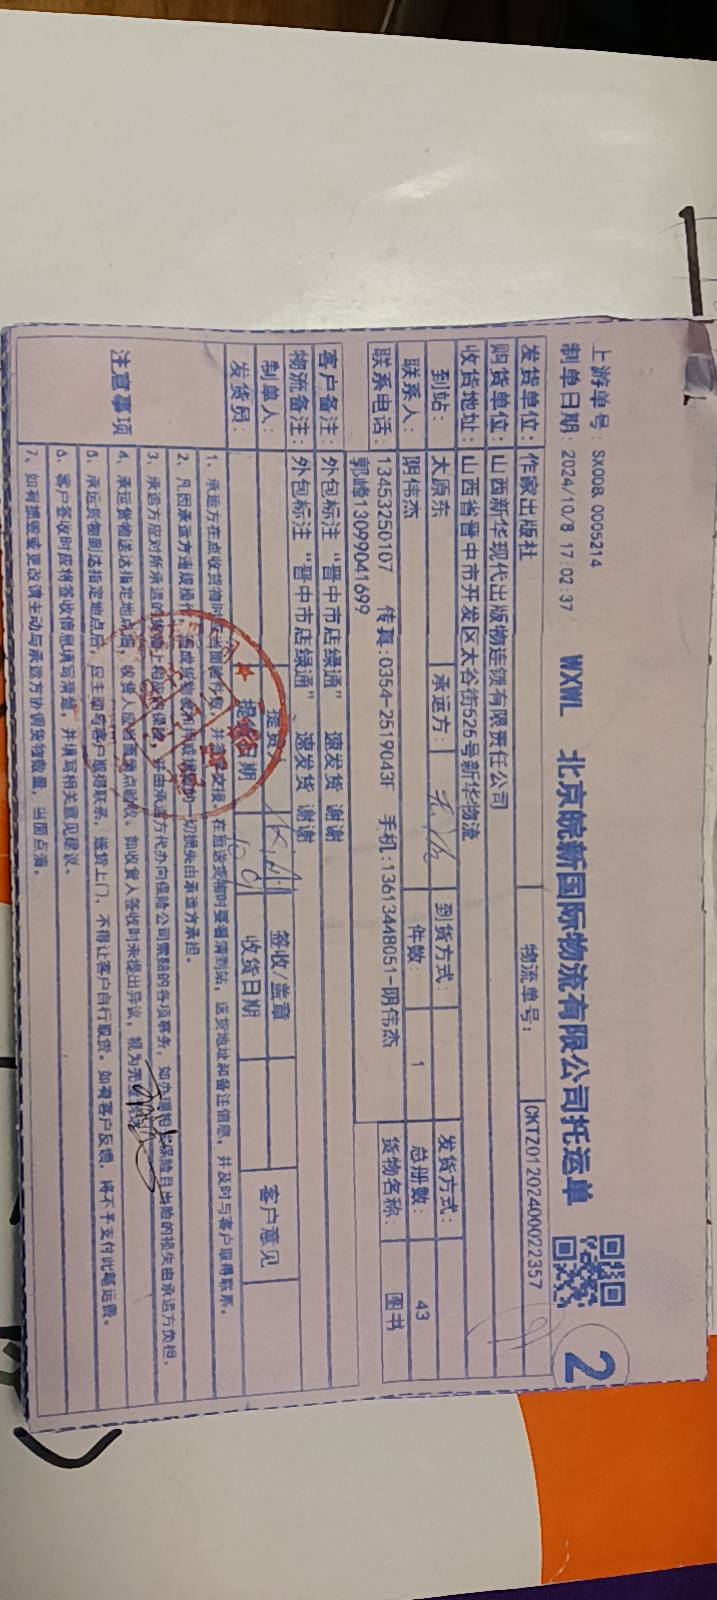 上游单号：SX00B_0005214
制单日期：2024/10/8 17:02:37 WXWL 北京皖新国际物流有限公司托运单 2
发货单位：作家出版社 物流单号：CKTZ01202400022357
购货单位：山西新华现代出版物连锁有限责任公司
收货地址：山西省晋中市开发区太谷街525号新华物流
到站：太原东 承运方： 到货方式： 发货方式：
联系人：阴伟杰 件数：1 总册数：43
联系电话：13453250107 传真:0354-2519043F 手机:13613448051-阴伟杰 货物名称：图书
郭峰13099041699
客户备注：外包标注“晋中市店绿通” 速发货 谢谢
物流备注：外包标注“晋中市店绿通” 速发货 谢谢
制单人： 提货人 签收/盖章 客户意见
发货员： 提货日期 10.9 收货日期
注意事项
1、承运方在点收货物时应当面点秒数，并 交接，在托运货物时要看清到站，送货地址和备注信息，并及时与客户取得联系。
2、凡因承运方违规操作， 成货物 一切损失由承运方承担。
3、承运方应对所承运的货物上 保险， 由承运方代办向保险公司索赔的各项事务，如办理 保险且出险的损失由承运方负担。
4、承运货物送达指定地点后，收货人应当面清点验收。如收货人签收时未提出异议，视为
5、承运货物到达指定地点后，应主动与客户取得联系，送货上门，不得让客户自行取货。如有客户反馈，将不予支付此笔运费。
6、客户签收时应将签收信息填写清楚，并填写相关意见建议。
7、如有损毁或更改请主动与承运方协调货物数量，当面点清。